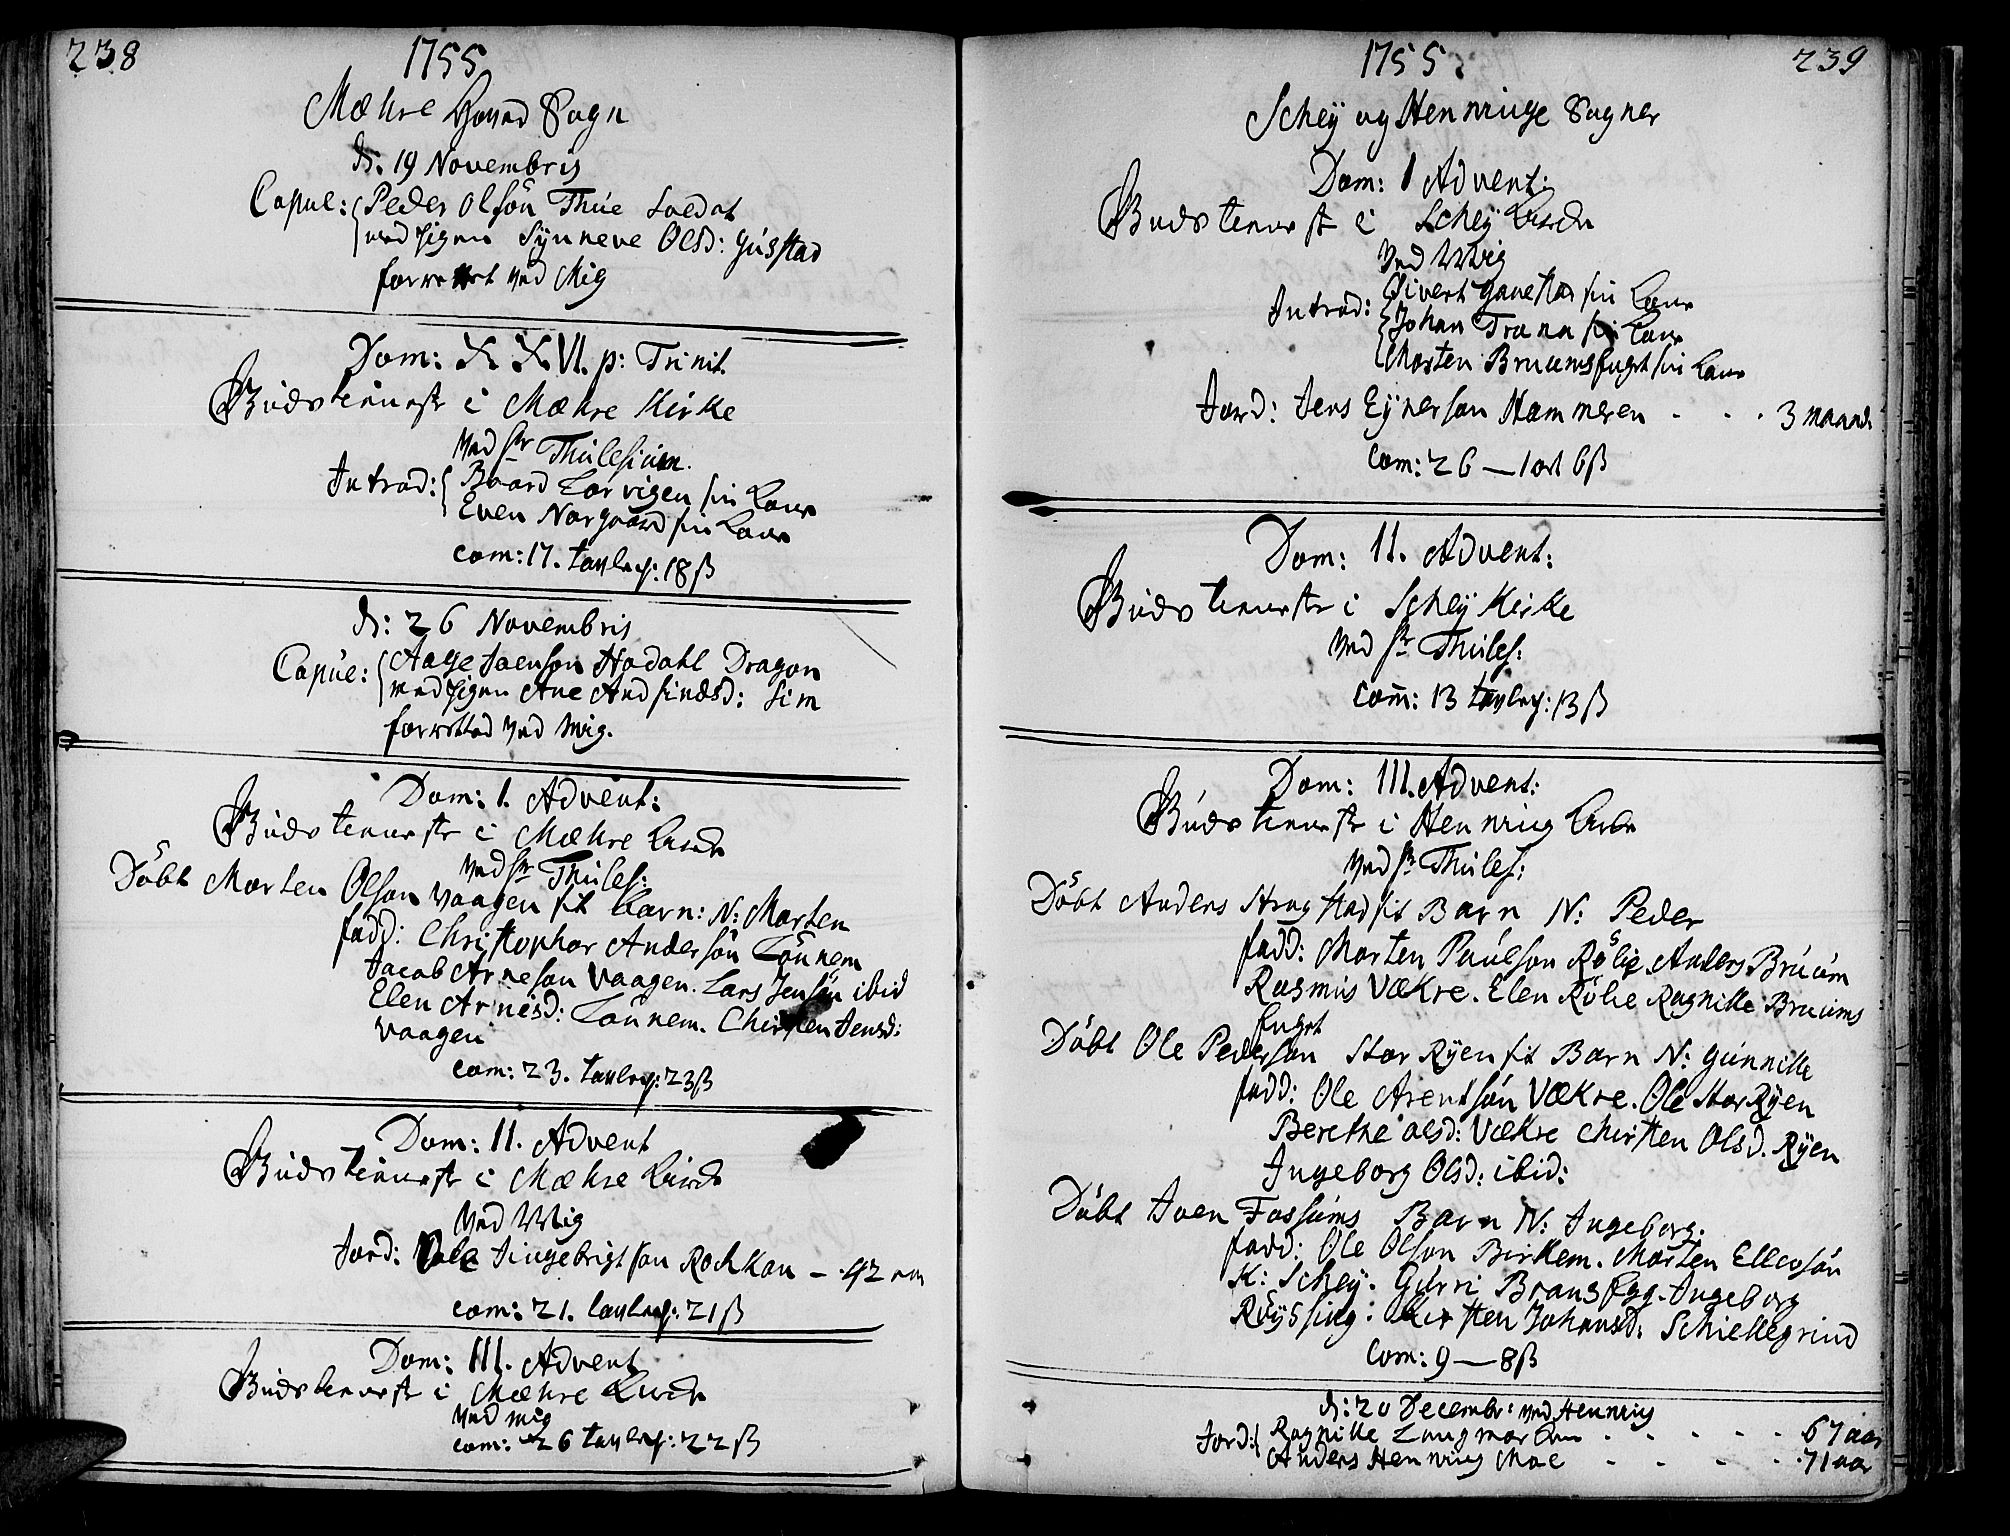 238
1755
Mæhre Hoved Sogn
d: 19 Novembris
Capul: Peder Olsön Thue Soldat
med Pigen Synneve Olsd: Gusstad
forrettet ved Mig
Dom: XXVI. p: Trinit.
Gudstieneste i Mæhre Kirke
ved Hr Thulesium.
Introd: Baard Lorvigen sin Kone
Even Norgaard sin Kone
com: 17. tavlep: 18 ß
d: 26 Novembris
Capul: Aage Joenson Hadahl Dragon
med Pigen Ane Andfindsd: Sim
forretted ved Mig.
Dom: I. Advent:
Gudstieneste i Mæhre Kirche
ved Hr Thules:
Döbt Morten Olson Vaagen sit barn: N: Morten
fadd: Christophor Andersön Lönnem
Jacob Arneson Vaagen. Lars Jensön ibid
Elen Arnesd: Lönnem. Chirsten Jensd:
Vaagen
com: 23. tavlep: 23 ß
Dom: II. Advent
Gudstieneste i Mæhre Kirche
ved Mig
Jord: Ole Jngebrigtson - 42
com: 21. tavlep: 21 ß
Dom: III. Advent
Gudstieneste i Mæhre Kirche
ved mig
com: 26 tavlep: 22 ß
1755.
239
Schey og Henninge Sogner
Dom: I Advent:
Gudstieneste i Schey Kirche
ved Mig
Introd: Sivert sin Kone
Johan Trana sin Kone
Morten Bruumsfuget sin Kone
Jord: Jens Eynerson Hammeren - - - 3 maan:
Com: 26 — 1 ort 6 ß
Dom: II. Advent:
Gudstieneste i Schey Kirke
ved Hr Thules:
Com: 13 tavlep: 13 ß
Dom: III. Advent:
Gudstieneste i Henning Kirke
ved Hr Thules:
Döbt Anders sit Barn N: Peder
fadd: Morten Paulson Rölig. Anders Bruum
Rasmus Vækre. Elen Rölie Ragnille Bruums
fuget
Döbt Ole Pederson Stor Ryen sit Barn N: Gunnille
fadd: Ole Arentsön Vækre. Ole Stor Ryen
Berethe Olsd: Vækre Chirsten Olsd. Ryen
Jngeborg Olsd: ibid:
Döbt Joen Fossums Barn N: Jngeborg.
fadd: Ole Olson Birkem. Morten Ellevsön
K: Schey. Gurri Jngeborg
Röyssing: Kirsten Johansd: Schiellegrind
Com: 9 — 8 ß
d: 20 Decembr: ved Henning
Jord: Ragnille - - - - - 67 aar
Anders Henning Moe - - - - 71 aar